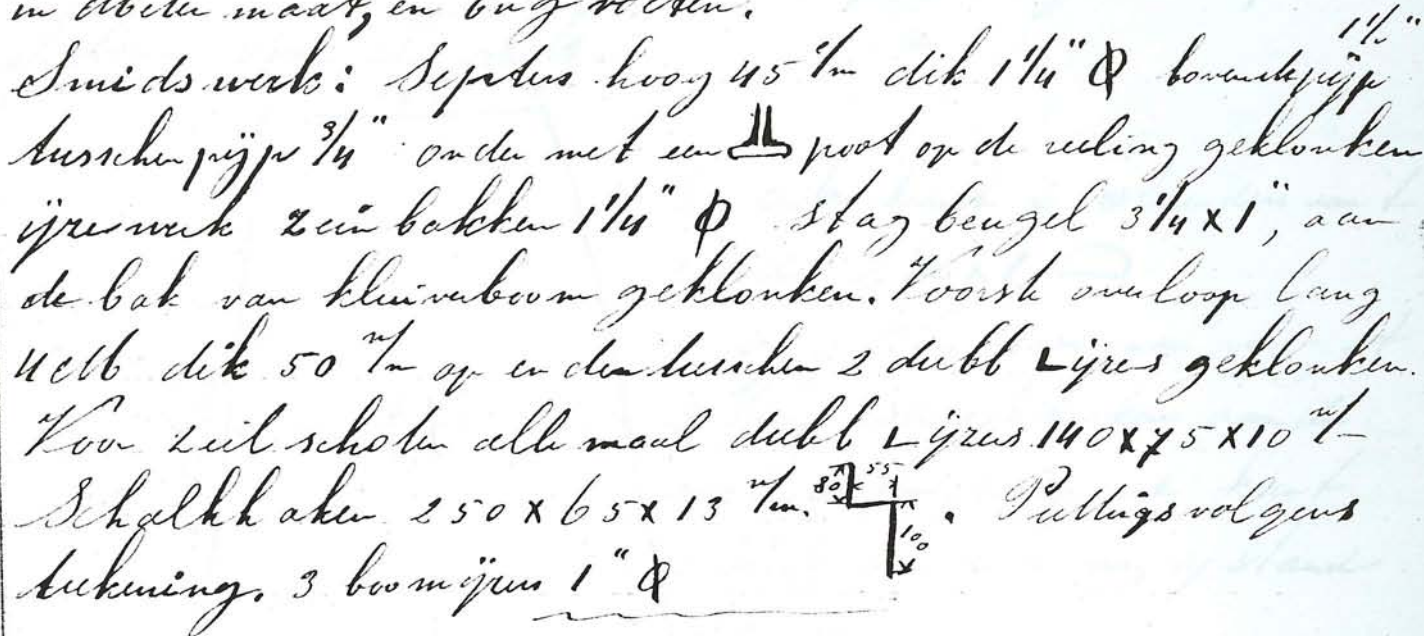 maat, en
1 1/2"
Smidswerk: Septers hoog 45 c/m dik 1 1/4" Φ bovenste pijp
tusschenpijp 3/4" onder met een poot op de reeling geklonken
ijzerwerk zeinbakken 1 1/4" Φ stag beugel 3 1/4 x 1", aan
de bak van kluiverboom geklonken. Voorste overloop lang
4 dik 50 m/m op en tusschen 2 dubb L ijzers geklonken.
Voor zeil schoten alle maal dubb L ijzers 140 x 75 x 10 m/m
Schalkhaken 250 x 65 x 13 m/m. 80 55 100 . Puttings volgens
teekening. 3 boomijzers 1" Φ